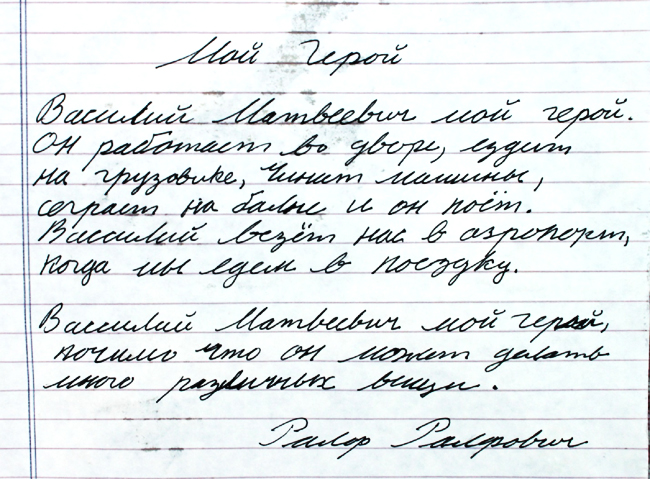 Мой Герой
Василий Матвеевич мой герой.
Он работает во дворе, ездит
на грузовике, чинит машины,
сеграет на балне и он поёт.
Василий везёт нас в аэропорт,
когда мы едем в поездку.
Василий Матвеевич мой герой,
почимо что он может делать
много различных вещи.
Ралф Ралфович